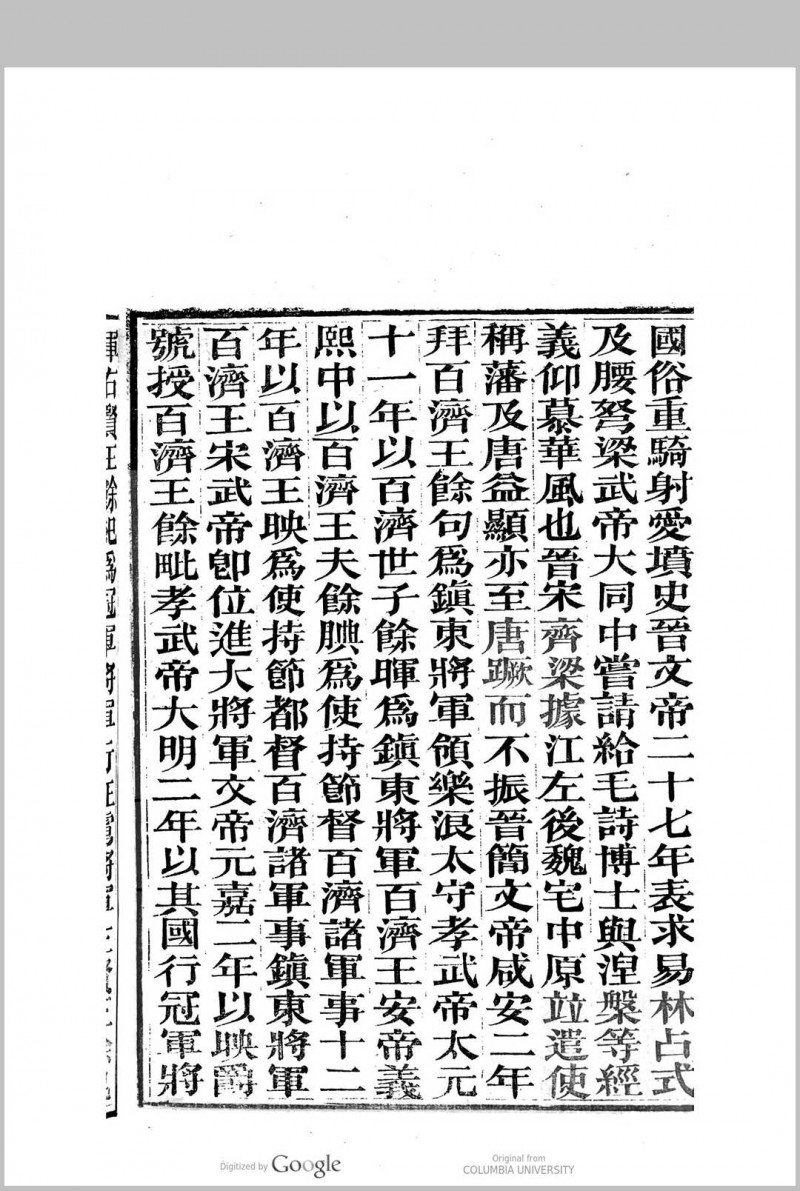 國俗重騎射愛墳史晉文帝二十七年表求易林占式
及腰弩梁武帝大同中嘗請給毛詩博士與涅槃等經
義仰慕華風也晉宋齊梁據江左後魏宅中原竝遣使
稱藩及唐益顯亦至唐蹶而不振晉簡文帝咸安二年
拜百濟王餘句爲鎭東將軍領樂浪太守孝武帝太元
十一年以百濟世子餘暉爲鎭東將軍百濟王安帝義
熙中以百濟王夫餘腆爲使持節督百濟諸軍事十二
年以百濟王映爲使持節都督百濟諸軍事鎭東將軍
百濟王宋武帝卽位進大將軍文帝元嘉二年以映爵
號授百濟王餘毗孝武帝大明二年以其國行冠軍將
Digitized by Google
Original from
COLUMBIA UNIVERSITY